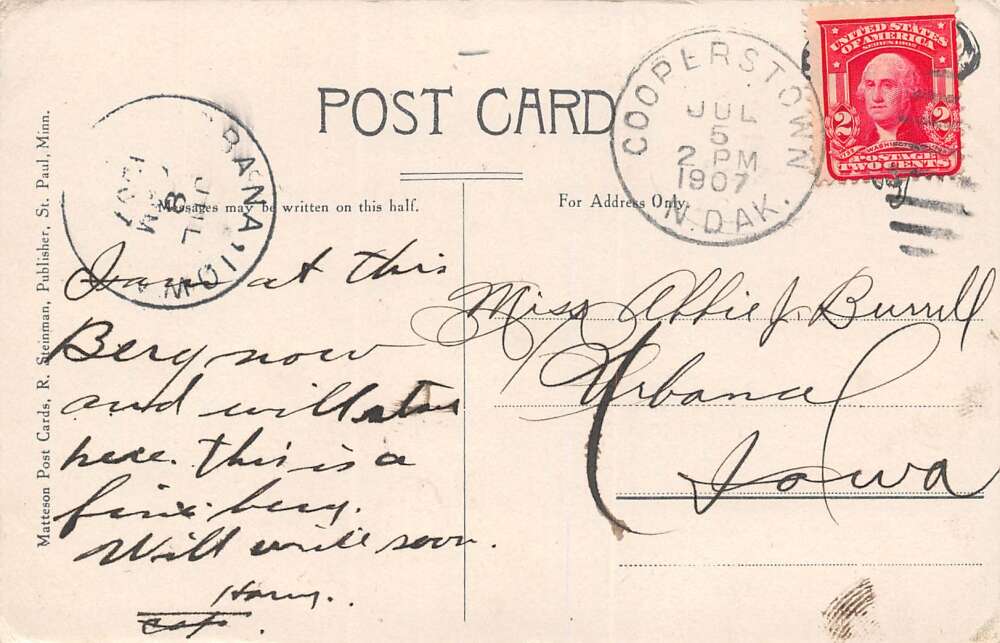 POST CARD
Messages may be written on this half.
For Address Only.
COOPERSTOWN
JUL
5
2 PM
1907
N. DAK.
UNITED STATES
OF AMERICA
SERIES 1902
2 2
WASHINGTON
POSTAGE
TWO CENTS
BANA, IOW
JUL
8
M
1907
I am at this
Berg now
and will stay
here. This is a
fine berg.
Will write soon.
Harry.
Miss Abbie J. Burrell
Urbana
Iowa
Matteson Post Cards, R. Steinman, Publisher, St. Paul, Minn.